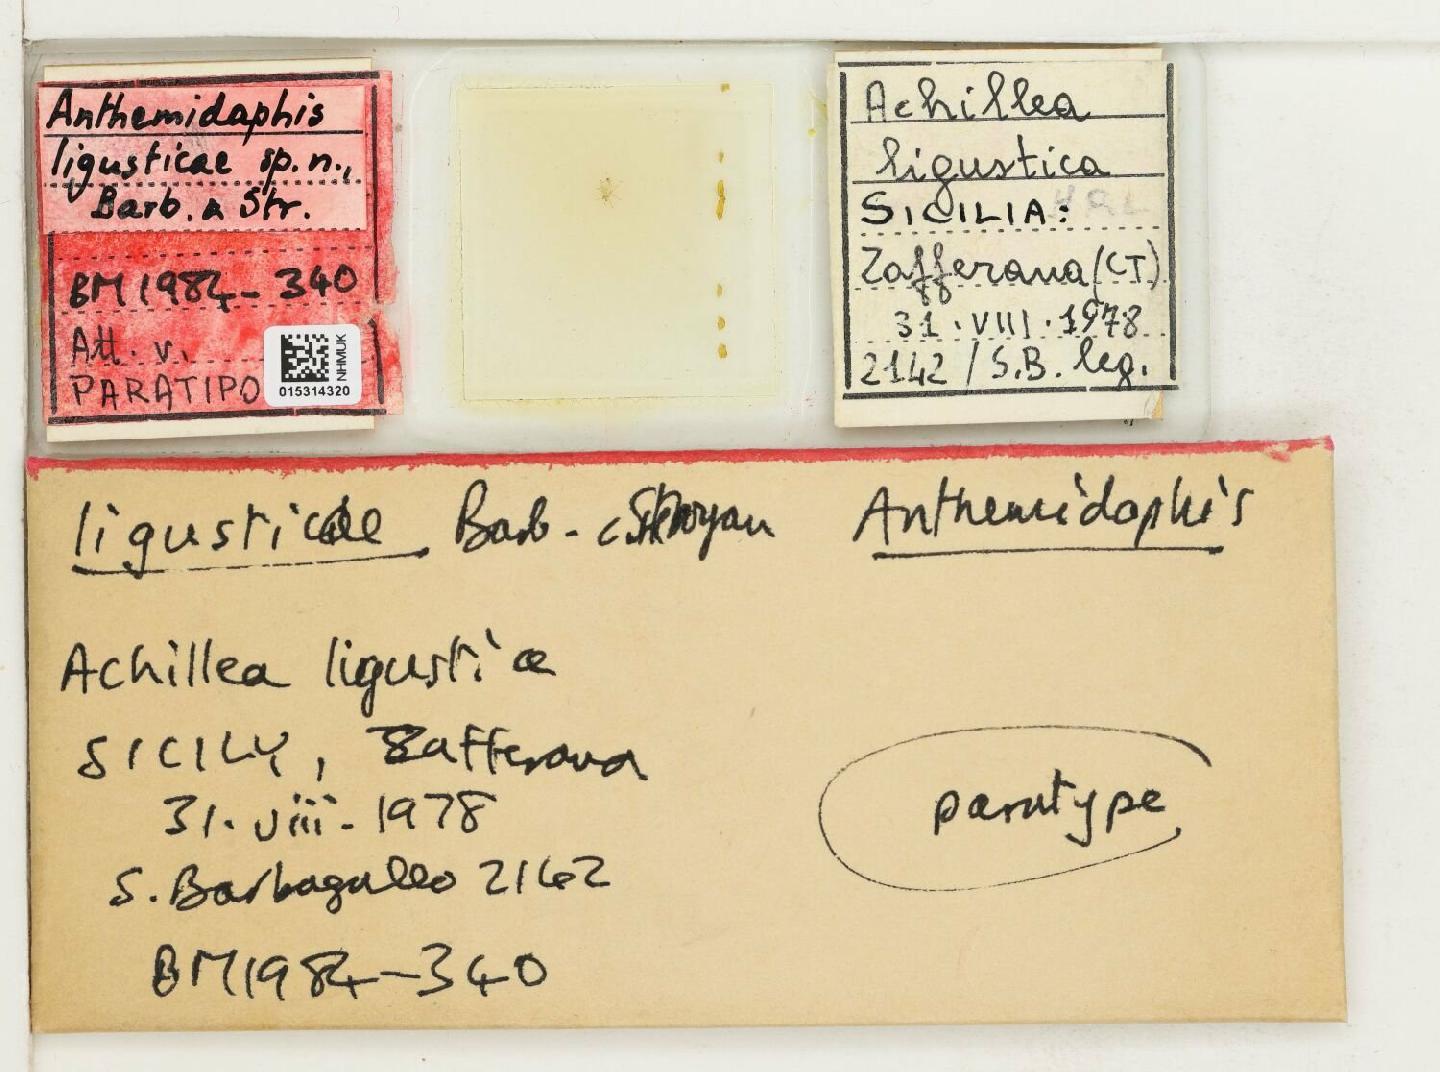 Anthemidaphis
ligusticae sp. n.,
Barb. & Str.
BM 1984-340
Att. v.
PARATIPO
NHMUK
015314320
Achillea
ligustica
SICILIA:
Zafferana (CT)
31.VIII.1978
2142 / S.B. leg.
ligusticae Barb. & Stroyan Anthemidaphis
Achillea ligusticae
SICILY, Zafferana
31.viii.1978
paratype
S. Barbagallo 2142
BM1984-340